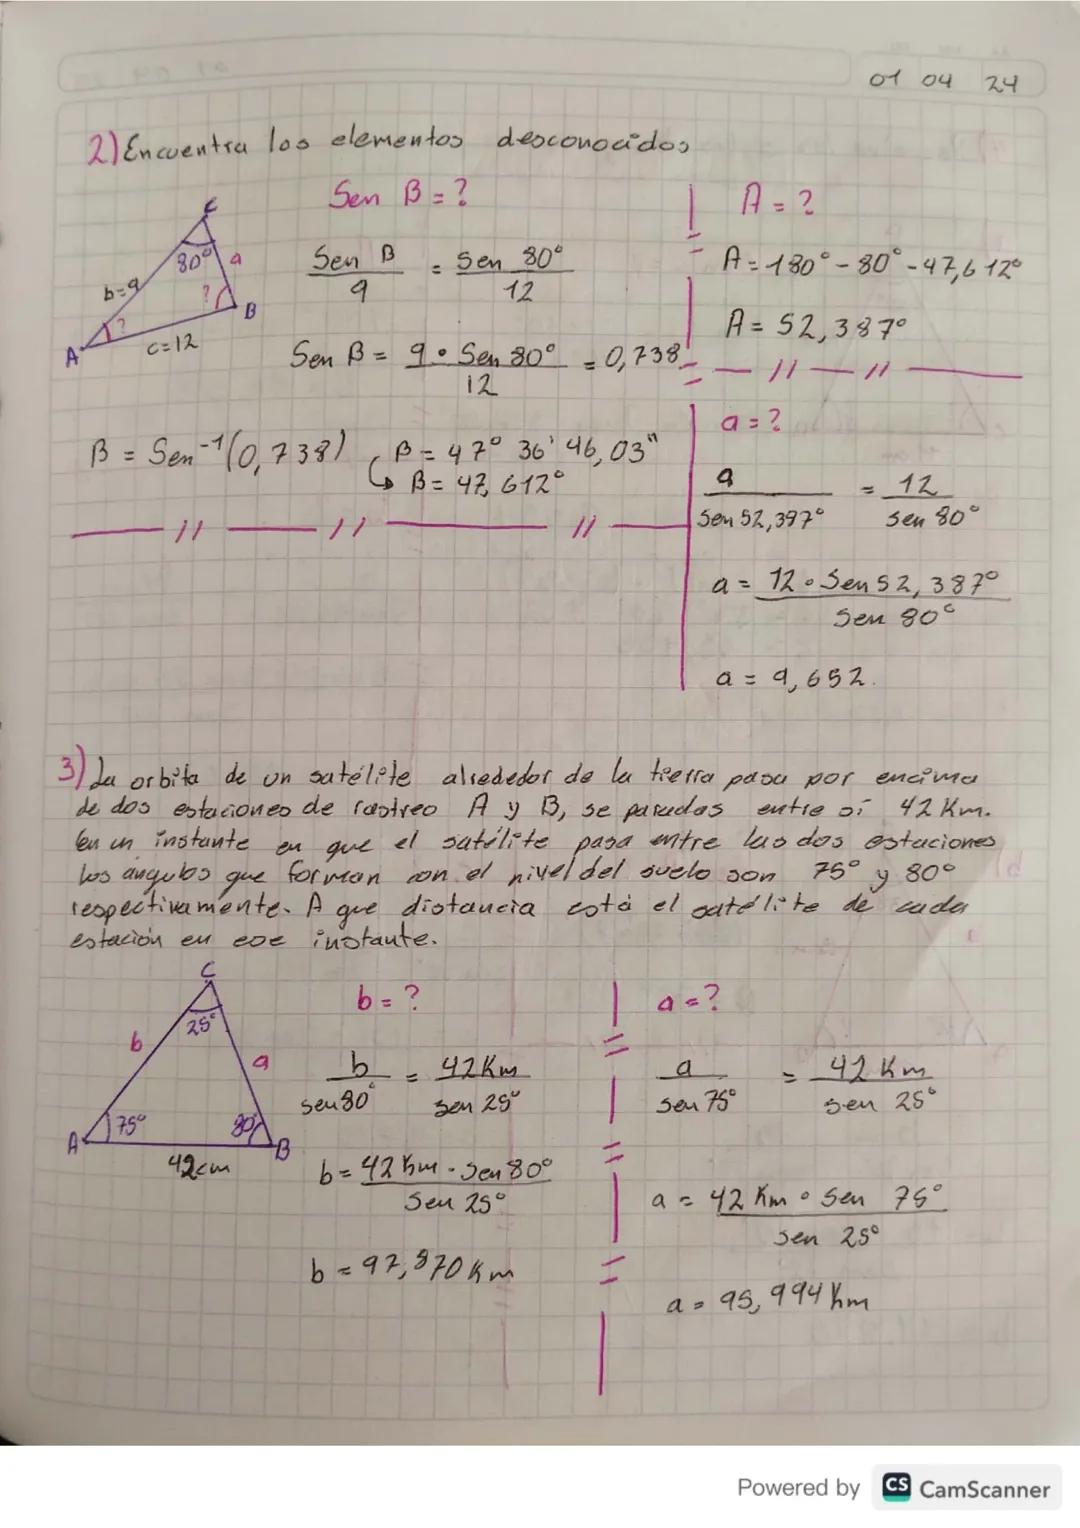 01 04 24
2) Encuentra los elementos desconocidos
Sen B = ?
C
80°
a
b=9
?
B
?
A
c=12
Sen B / 9 = Sen 80° / 12
Sen B = 9 • Sen 80° / 12 = 0,738
B = Sen⁻¹(0,738)
B = 47° 36' 46,03"
↳ B = 47,612°
A = ?
A = 180° - 80° - 47,612°
A = 52,387°
a = ?
a / Sen 52,397° = 12 / Sen 80°
a = 12 • Sen 52,387° / Sen 80°
a = 9,652.
3) La orbita de un satélite alrededor de la tierra pasa por encima
de dos estaciones de rastreo A y B, se paradas entre sí 42 Km.
En un instante en que el satélite pasa entre las dos estaciones
los angulos que forman con el nivel del suelo son 75° y 80°
respectivamente. A que distancia está el satélite de cada
estación en ese instante.
C
25°
b
a
75°
80°
A
B
42cm
b = ?
b / sen 80° = 42 Km / sen 25°
b = 42 Km • Sen 80° / Sen 25°
b = 97,870 Km
a = ?
a / Sen 75° = 42 Km / Sen 25°
a = 42 Km • Sen 75° / Sen 25°
a = 95,994 Km
Powered by CS CamScanner